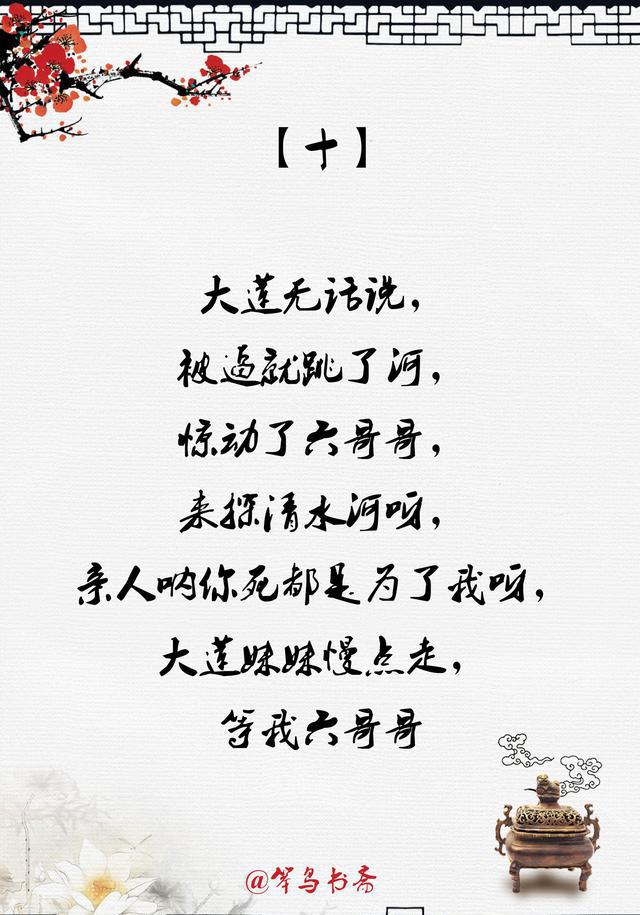 【十】
大莲无话说，
被逼就跳了河，
惊动了六哥哥，
来探清水河呀，
亲人呐你死都是为了我呀，
大莲妹妹慢点走，
等我六哥哥
@笨鸟书斋